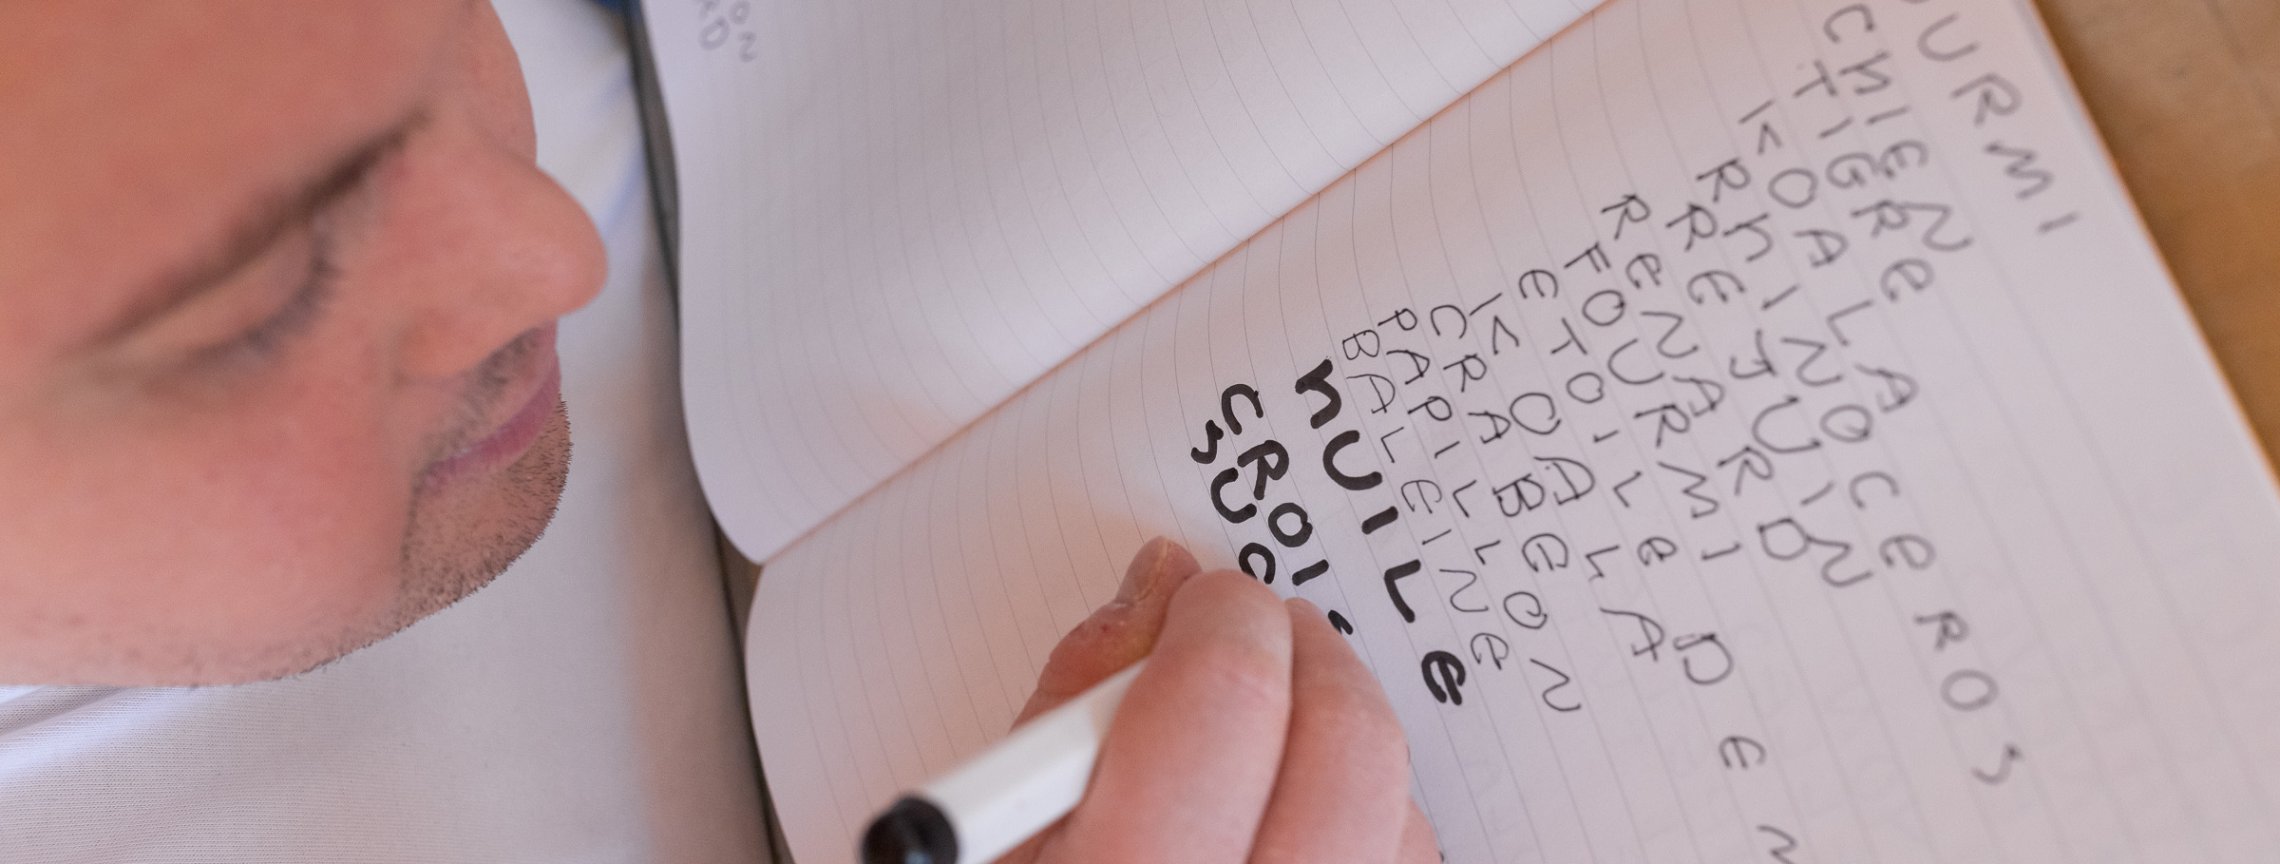 OURMI
ChIEN
TIGRe
KOALA
RhINOCeROS
REJUIN
ReNARD
FOURMI
eTOILe De M
KOALA
CRABE
PAPILLON
BALEINe
hUILe
CROI
SUC